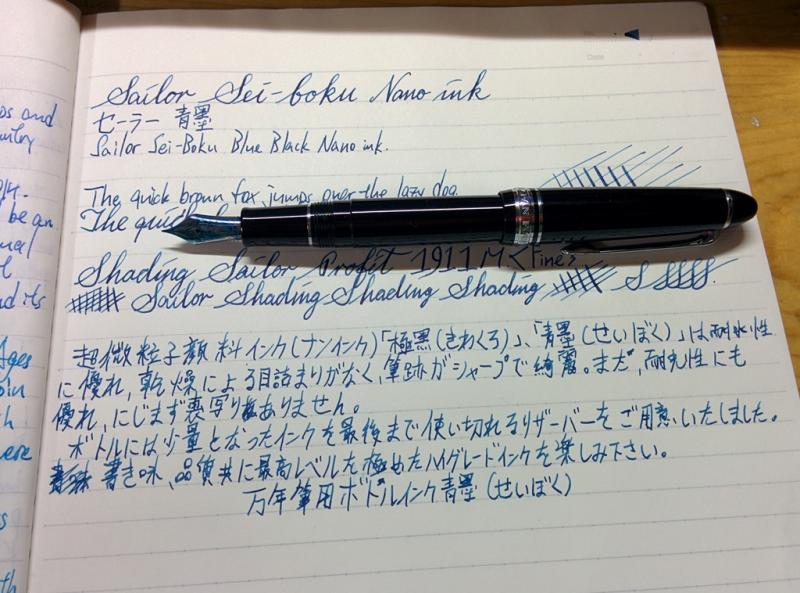 Date
Sailor Sei-boku Nano ink
セーラー 青墨
Sailor Sei-Boku Blue Black Nano ink.
The quick brown fox jumps over the lazy dog
The quick
Shading Sailor Profit 1911 M <Fine>
Sailor Shading Shading Shading
超微粒子顔料インク(ナンインク)「極黒(きわくろ)」、「青墨(せいぼく)」は耐水性
に優れ,乾燥による目詰まりがなく,筆跡がシャープで綺麗。まだ,耐光性にも
優れ,にじまず裏写りもありません。
ボトルには少量となったインクを最後まで使い切れるリザーバーをご用意いたしました。
書き味、品質共に最高レベルを極めたハイグレードインクを楽しみ下さい。
万年筆用ボトルインク青墨(せいぼく)
ps and
be an
nual
nd its
Ages
ere
th